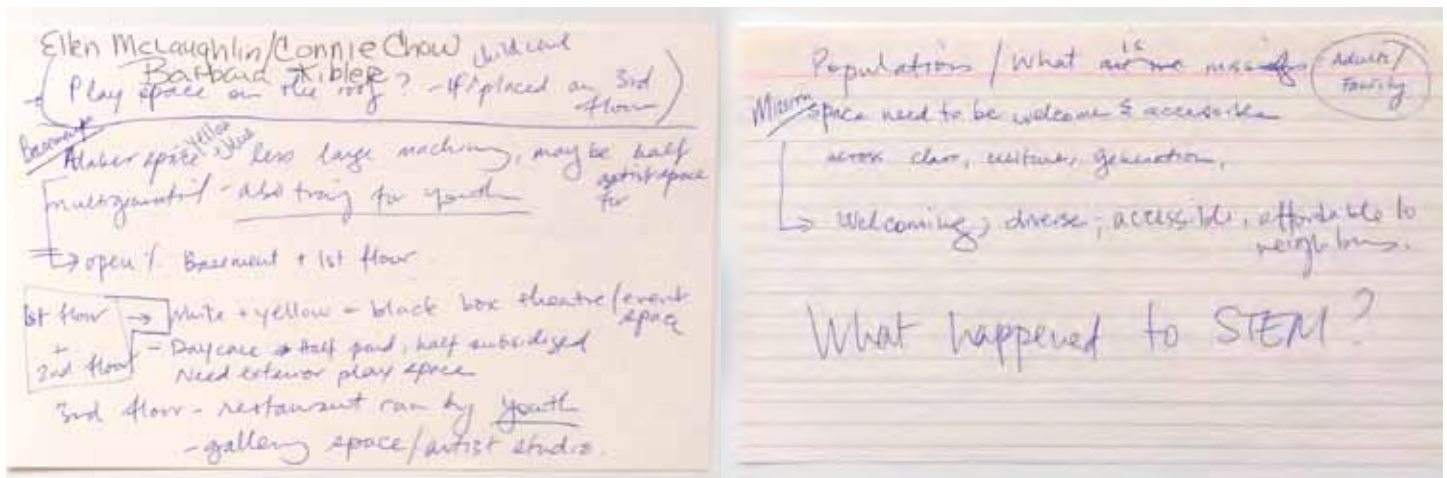 Ellen McLaughlin/Connie Chow
child care
Barbara
Play space on the roof? - If placed on 3rd floor
Basement
Maker space yellow + blue less large machinery, maybe half
artist space
for
- also traing for youth
→ open % Basement + 1st floor
1st floor → White + yellow - black box theatre/event
space
+
2nd floor - Daycare → Half paid, half subsidized
Need exterior play space
3rd floor - restaurant run by youth
- gallery space/artist studio.
Populations / What is missing
Adults/
Family
Mission space need to be welcome & accessible
across class, culture, generation,
→ Welcoming; diverse; accessible, affordable to
neighbors.
What happened to STEM?